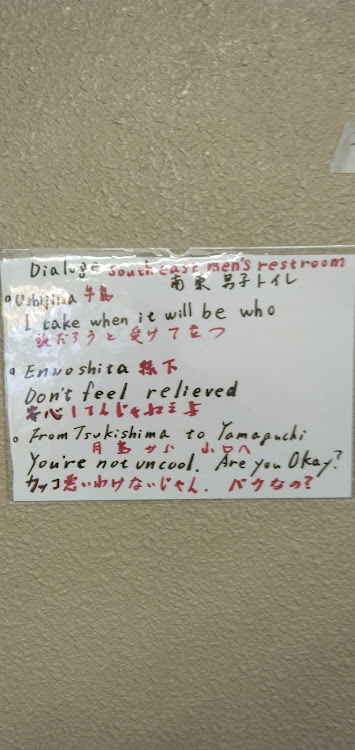 Dialoge southeast men's restroom
南東 男子トイレ
Ushijima 牛島
I take when it will be who
誰だろうと受けて立つ
Ennoshita 縁下
Don't feel relieved
安心してんじゃねえよ
From Tsukishima to Yamaguchi
月島から 山口へ
You're not uncool. Are you Okay?
カッコ悪いわけないじゃん. バカなの?